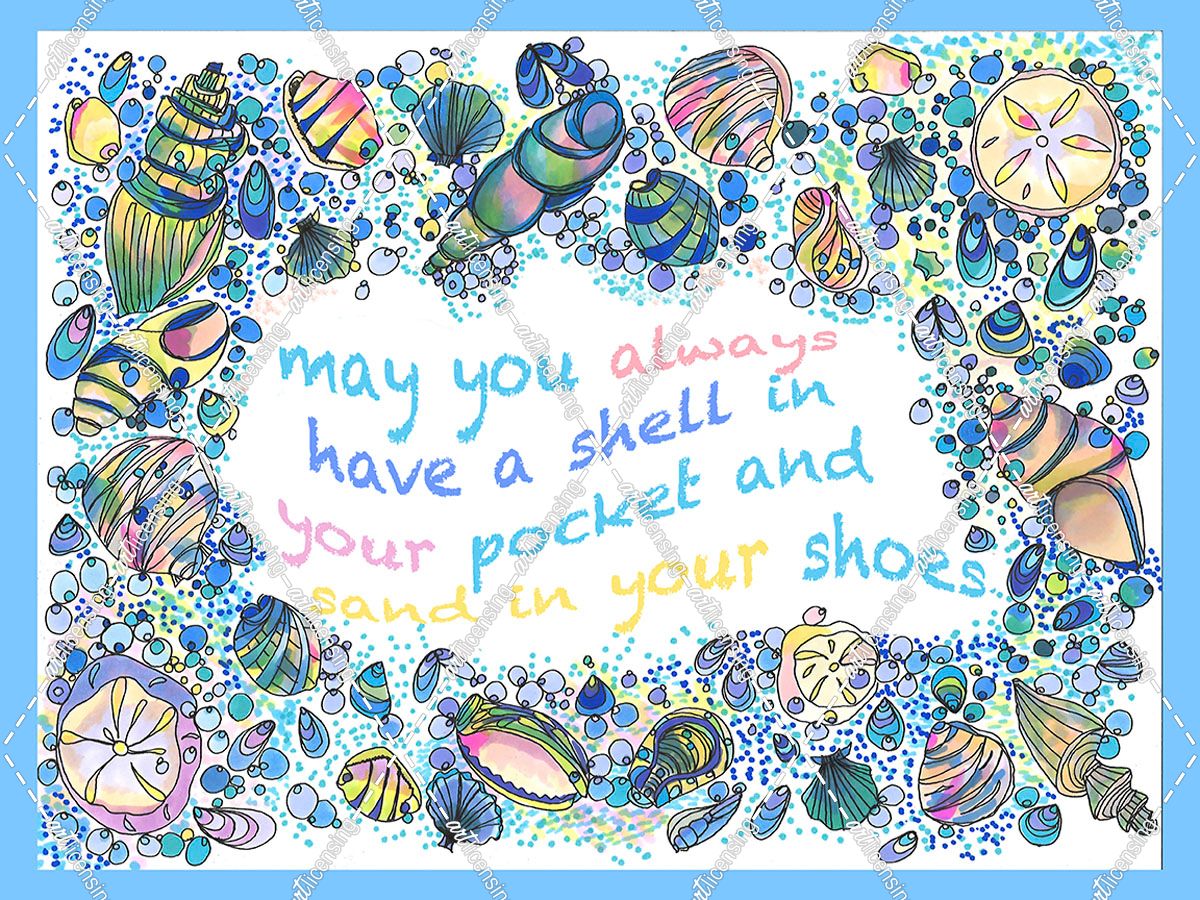 may you always
have a shell in
your pocket and
sand in your shoes
artlicensing